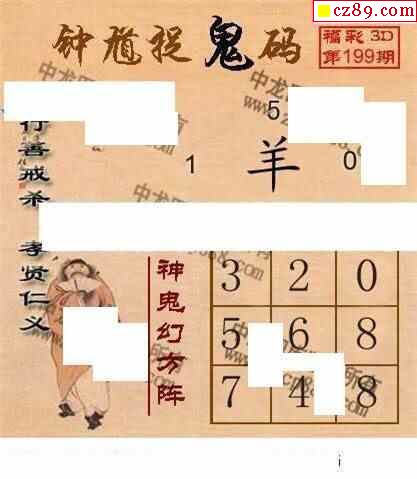 cz89.com
钟馗捉鬼码
福彩 3D
第199期
5
1
羊
0
行善戒杀
孝贤仁义
神鬼幻方阵
3 2 0
5 6 8
7 4 8